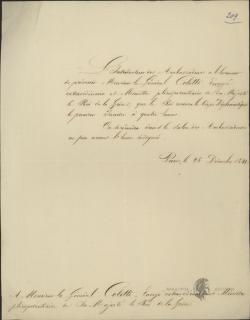 209
L'Introducteur des Ambassadeurs a l'honneur
de prévenir Monsieur le Général Colettis, Envoyé
extraordinaire et Ministre plénipotentiaire de Sa Majesté
le Roi de la Grèce, que le Roi recevra le Corps Diplomatique
le premier Janvier à quatre heures
On se réunira dans le Salon des Ambassadeurs
un peu avant l'heure indiquée.
Paris, le 28 Décembre
A Monsieur le Général Colettis, Envoyé extraordinaire et Ministre
plénipotentiaire de Sa Majesté le Roi de la Grèce